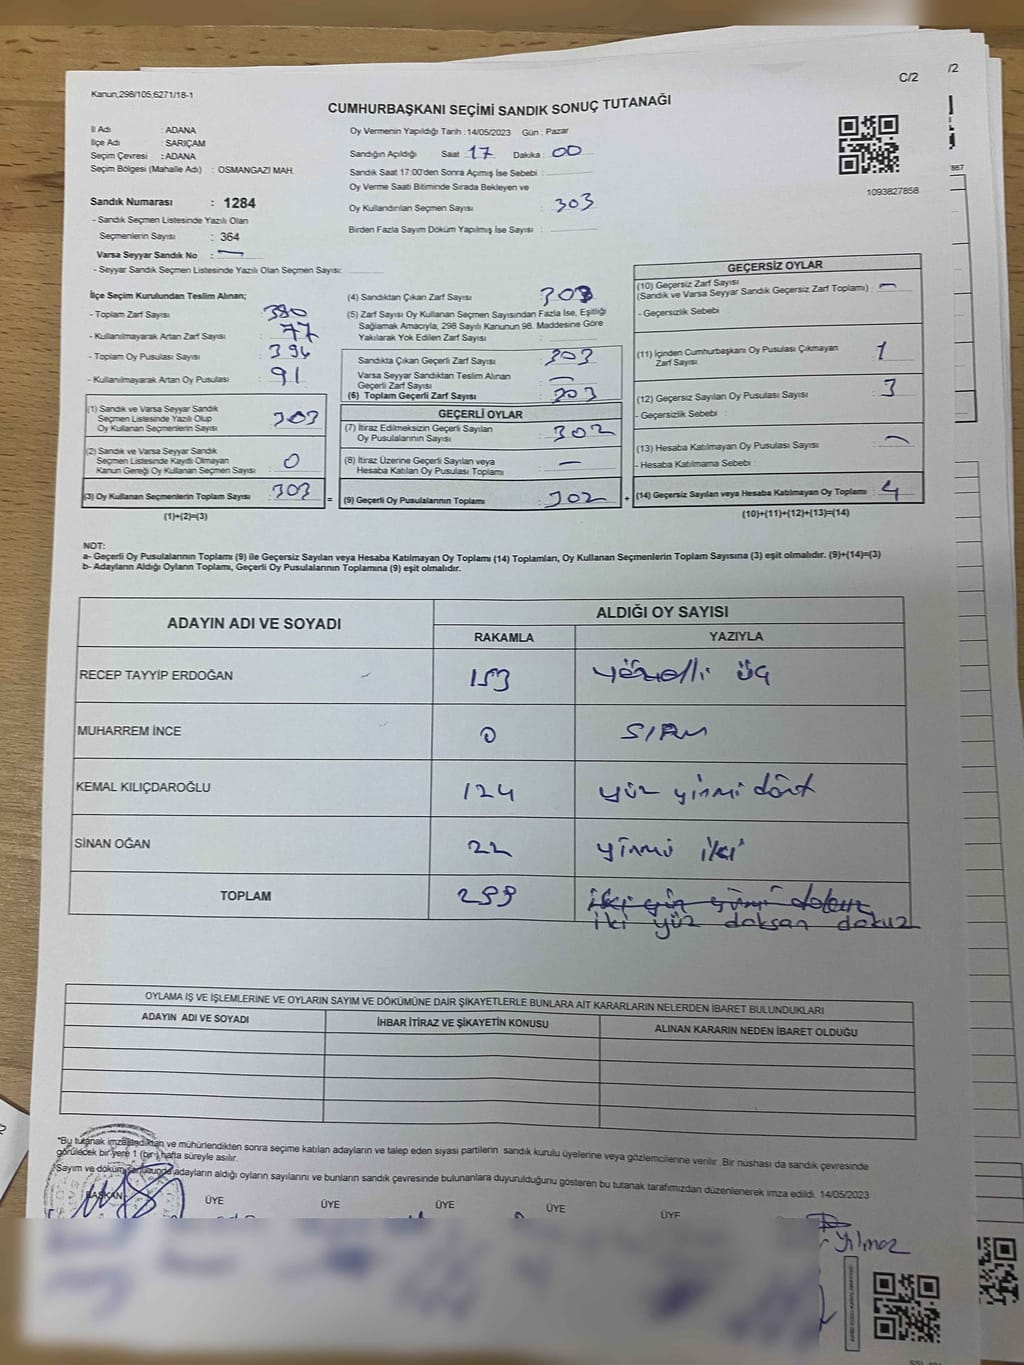 C/2
/2
Kanun;298/105;6271/18-1
CUMHURBAŞKANI SEÇİMİ SANDIK SONUÇ TUTANAĞI
İl Adı : ADANA
İlçe Adı : SARIÇAM
Seçim Çevresi : ADANA
Seçim Bölgesi (Mahalle Adı) : OSMANGAZI MAH.
Sandık Numarası : 1284
- Sandık Seçmen Listesinde Yazılı Olan
Seçmenlerin Sayısı : 364
Varsa Seyyar Sandık No : —
- Seyyar Sandık Seçmen Listesinde Yazılı Olan Seçmen Sayısı:
Oy Vermenin Yapıldığı Tarih :14/05/2023 Gün : Pazar
Sandığın Açıldığı Saat : 17 Dakika : 00
Sandık Saat 17:00'den Sonra Açımış İse Sebebi :
Oy Verme Saati Bitiminde Sırada Bekleyen ve
Oy Kullandırılan Seçmen Sayısı : 303
Birden Fazla Sayım Döküm Yapılmış İse Sayısı :
1093827858
867
İlçe Seçim Kurulundan Teslim Alınan;
- Toplam Zarf Sayısı : 380
- Kullanılmayarak Artan Zarf Sayısı : 77
- Toplam Oy Pusulası Sayısı : 394
- Kullanılmayarak Artan Oy Pusulası : 91
(1) Sandık ve Varsa Seyyar Sandık
Seçmen Listesinde Yazılı Olup
Oy Kullanan Seçmenlerin Sayısı : 303
(2) Sandık ve Varsa Seyyar Sandık
Seçmen Listesinde Kayıtlı Olmayan
Kanun Gereği Oy Kullanan Seçmen Sayısı : 0
(3) Oy Kullanan Seçmenlerin Toplam Sayısı : 303
(1)+(2)=(3)
(4) Sandıktan Çıkan Zarf Sayısı : 303
(5) Zarf Sayısı Oy Kullanan Seçmen Sayısından Fazla İse, Eşitliği
Sağlamak Amacıyla, 298 Sayılı Kanunun 98. Maddesine Göre
Yakılarak Yok Edilen Zarf Sayısı :
Sandıkta Çıkan Geçerli Zarf Sayısı : 303
Varsa Seyyar Sandıktan Teslim Alınan
Geçerli Zarf Sayısı : —
(6) Toplam Geçerli Zarf Sayısı : 303
GEÇERLİ OYLAR
(7) İtiraz Edilmeksizin Geçerli Sayılan
Oy Pusulalarının Sayısı : 302
(8) İtiraz Üzerine Geçerli Sayılan veya
Hesaba Katılan Oy Pusulası Toplamı : —
= (9) Geçerli Oy Pusulalarının Toplamı : 302
GEÇERSİZ OYLAR
(10) Geçersiz Zarf Sayısı
(Sandık ve Varsa Seyyar Sandık Geçersiz Zarf Toplamı) : —
- Geçersizlik Sebebi
(11) İçinden Cumhurbaşkanı Oy Pusulası Çıkmayan
Zarf Sayısı : 1
(12) Geçersiz Sayılan Oy Pusulası Sayısı : 3
- Geçersizlik Sebebi :
(13) Hesaba Katılmayan Oy Pusulası Sayısı : —
- Hesaba Katılmama Sebebi
+ (14) Geçersiz Sayılan veya Hesaba Katılmayan Oy Toplamı : 4
(10)+(11)+(12)+(13)=(14)
NOT:
a- Geçerli Oy Pusulalarının Toplamı (9) ile Geçersiz Sayılan veya Hesaba Katılmayan Oy Toplamı (14) Toplamları, Oy Kullanan Seçmenlerin Toplam Sayısına (3) eşit olmalıdır. (9)+(14)=(3)
b- Adayların Aldığı Oyların Toplamı, Geçerli Oy Pusulalarının Toplamına (9) eşit olmalıdır.
ADAYIN ADI VE SOYADI ALDIĞI OY SAYISI
RAKAMLA YAZIYLA
RECEP TAYYİP ERDOĞAN 153 yüzelli üç
MUHARREM İNCE 0 SIFIR
KEMAL KILIÇDAROĞLU 124 yüz yirmi dört
SİNAN OĞAN 22 yirmi iki
TOPLAM 299
iki yüz doksan dokuz
OYLAMA İŞ VE İŞLEMLERİNE VE OYLARIN SAYIM VE DÖKÜMÜNE DAİR ŞİKAYETLERLE BUNLARA AİT KARARLARIN NELERDEN İBARET BULUNDUKLARI
ADAYIN ADI VE SOYADI İHBAR İTİRAZ VE ŞİKAYETİN KONUSU ALINAN KARARIN NEDEN İBARET OLDUĞU
*Bu tutanak imzalandıktan ve mühürlendikten sonra seçime katılan adayların ve talep eden siyasi partilerin sandık kurulu üyelerine veya gözlemcilerine verilir. Bir nüshası da sandık çevresinde
görülecek bir yere 1 (bir) hafta süreyle asılır.
Sayım ve döküm sonucunda adayların aldığı oyların sayılarını ve bunların sandık çevresinde bulunanlara duyurulduğunu gösteren bu tutanak tarafımızdan düzenlenerek imza edildi. 14/05/2023
BAŞKAN ÜYE ÜYE ÜYE ÜYE ÜYE
Yılmaz